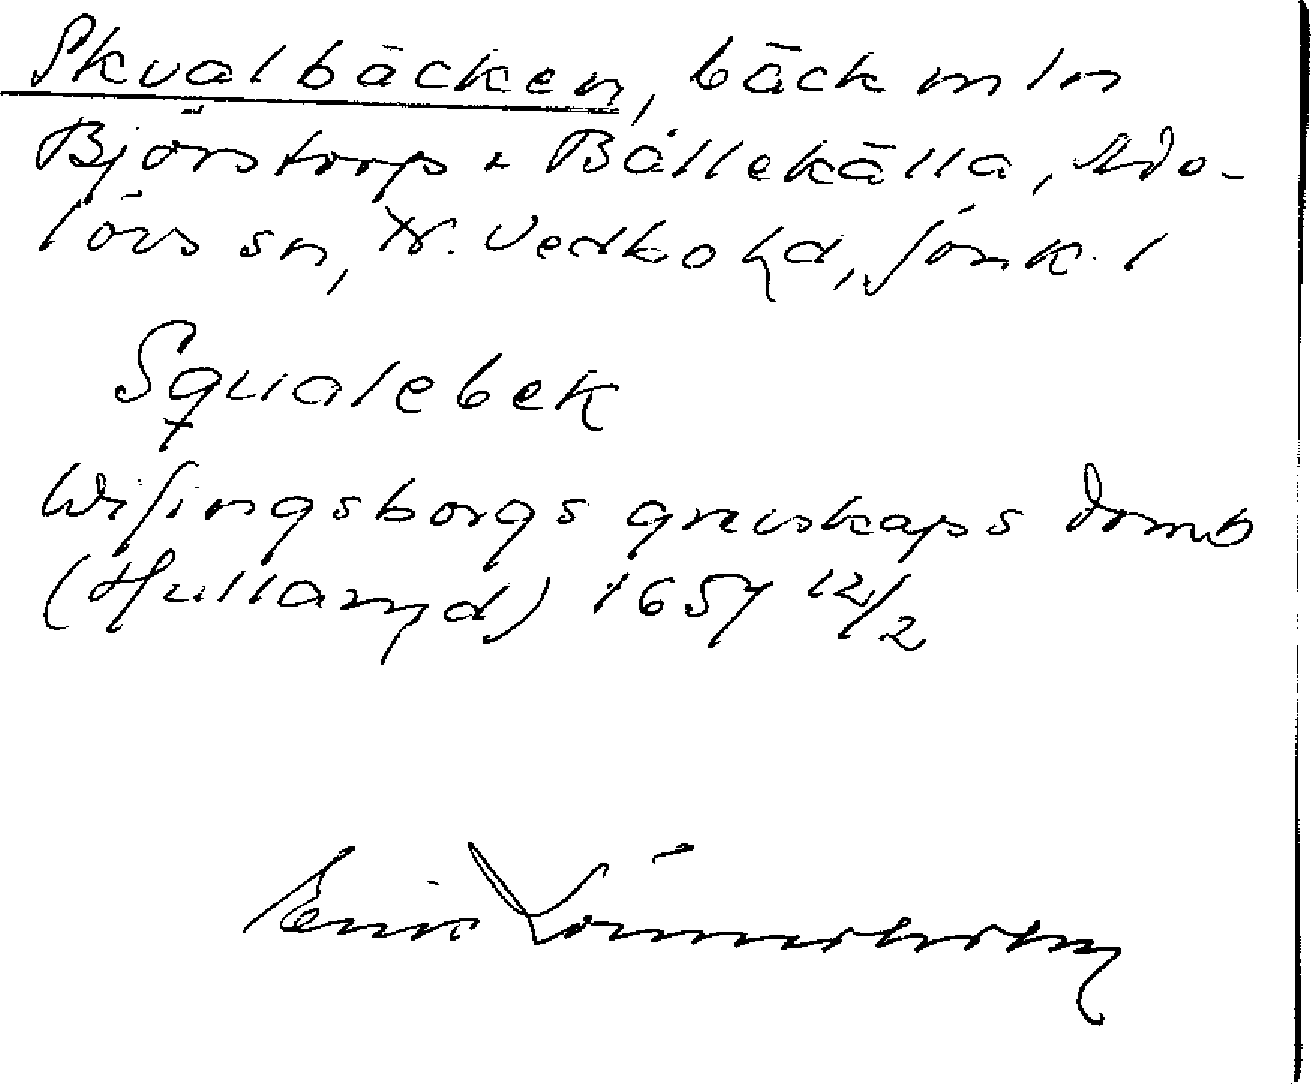 Skvalbäcken, bäck mln
Björstorp o Bållekälla, Ado-
lövs sn, N. Vedbo hd, Jönk. l
Squalebek
Wisingsborgs grevskaps domb
(Hullaryd) 1657 12/2
Erik